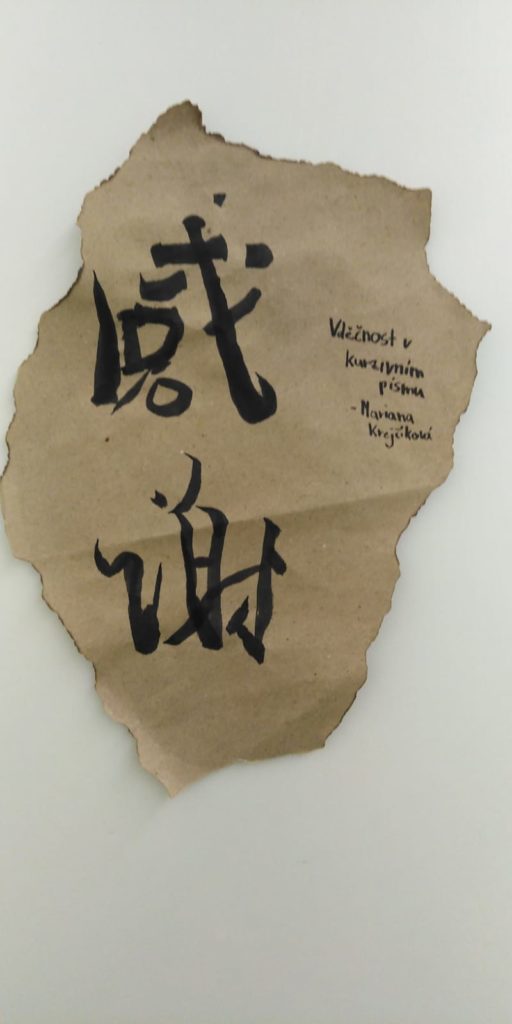 感
谢
Vděčnost v
kurzivním
písmu
- Mariana
Krejčíková